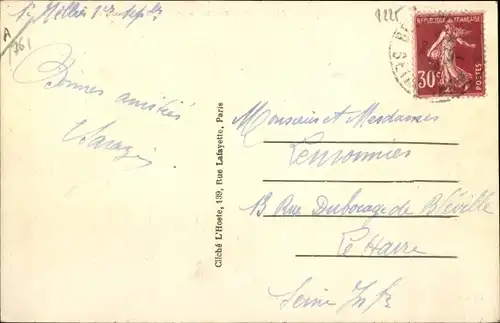 St Hellier 1er sept
1225
A
1761
Bonnes amitiés
RÉPUBLIQUE FRANÇAISE
30c
POSTES
Cliché L'Hoste, 139, Rue Lafayette, Paris
Monsieur et Mesdames
13 Rue Dubocage de Bléville
Le Havre
Seine Infre